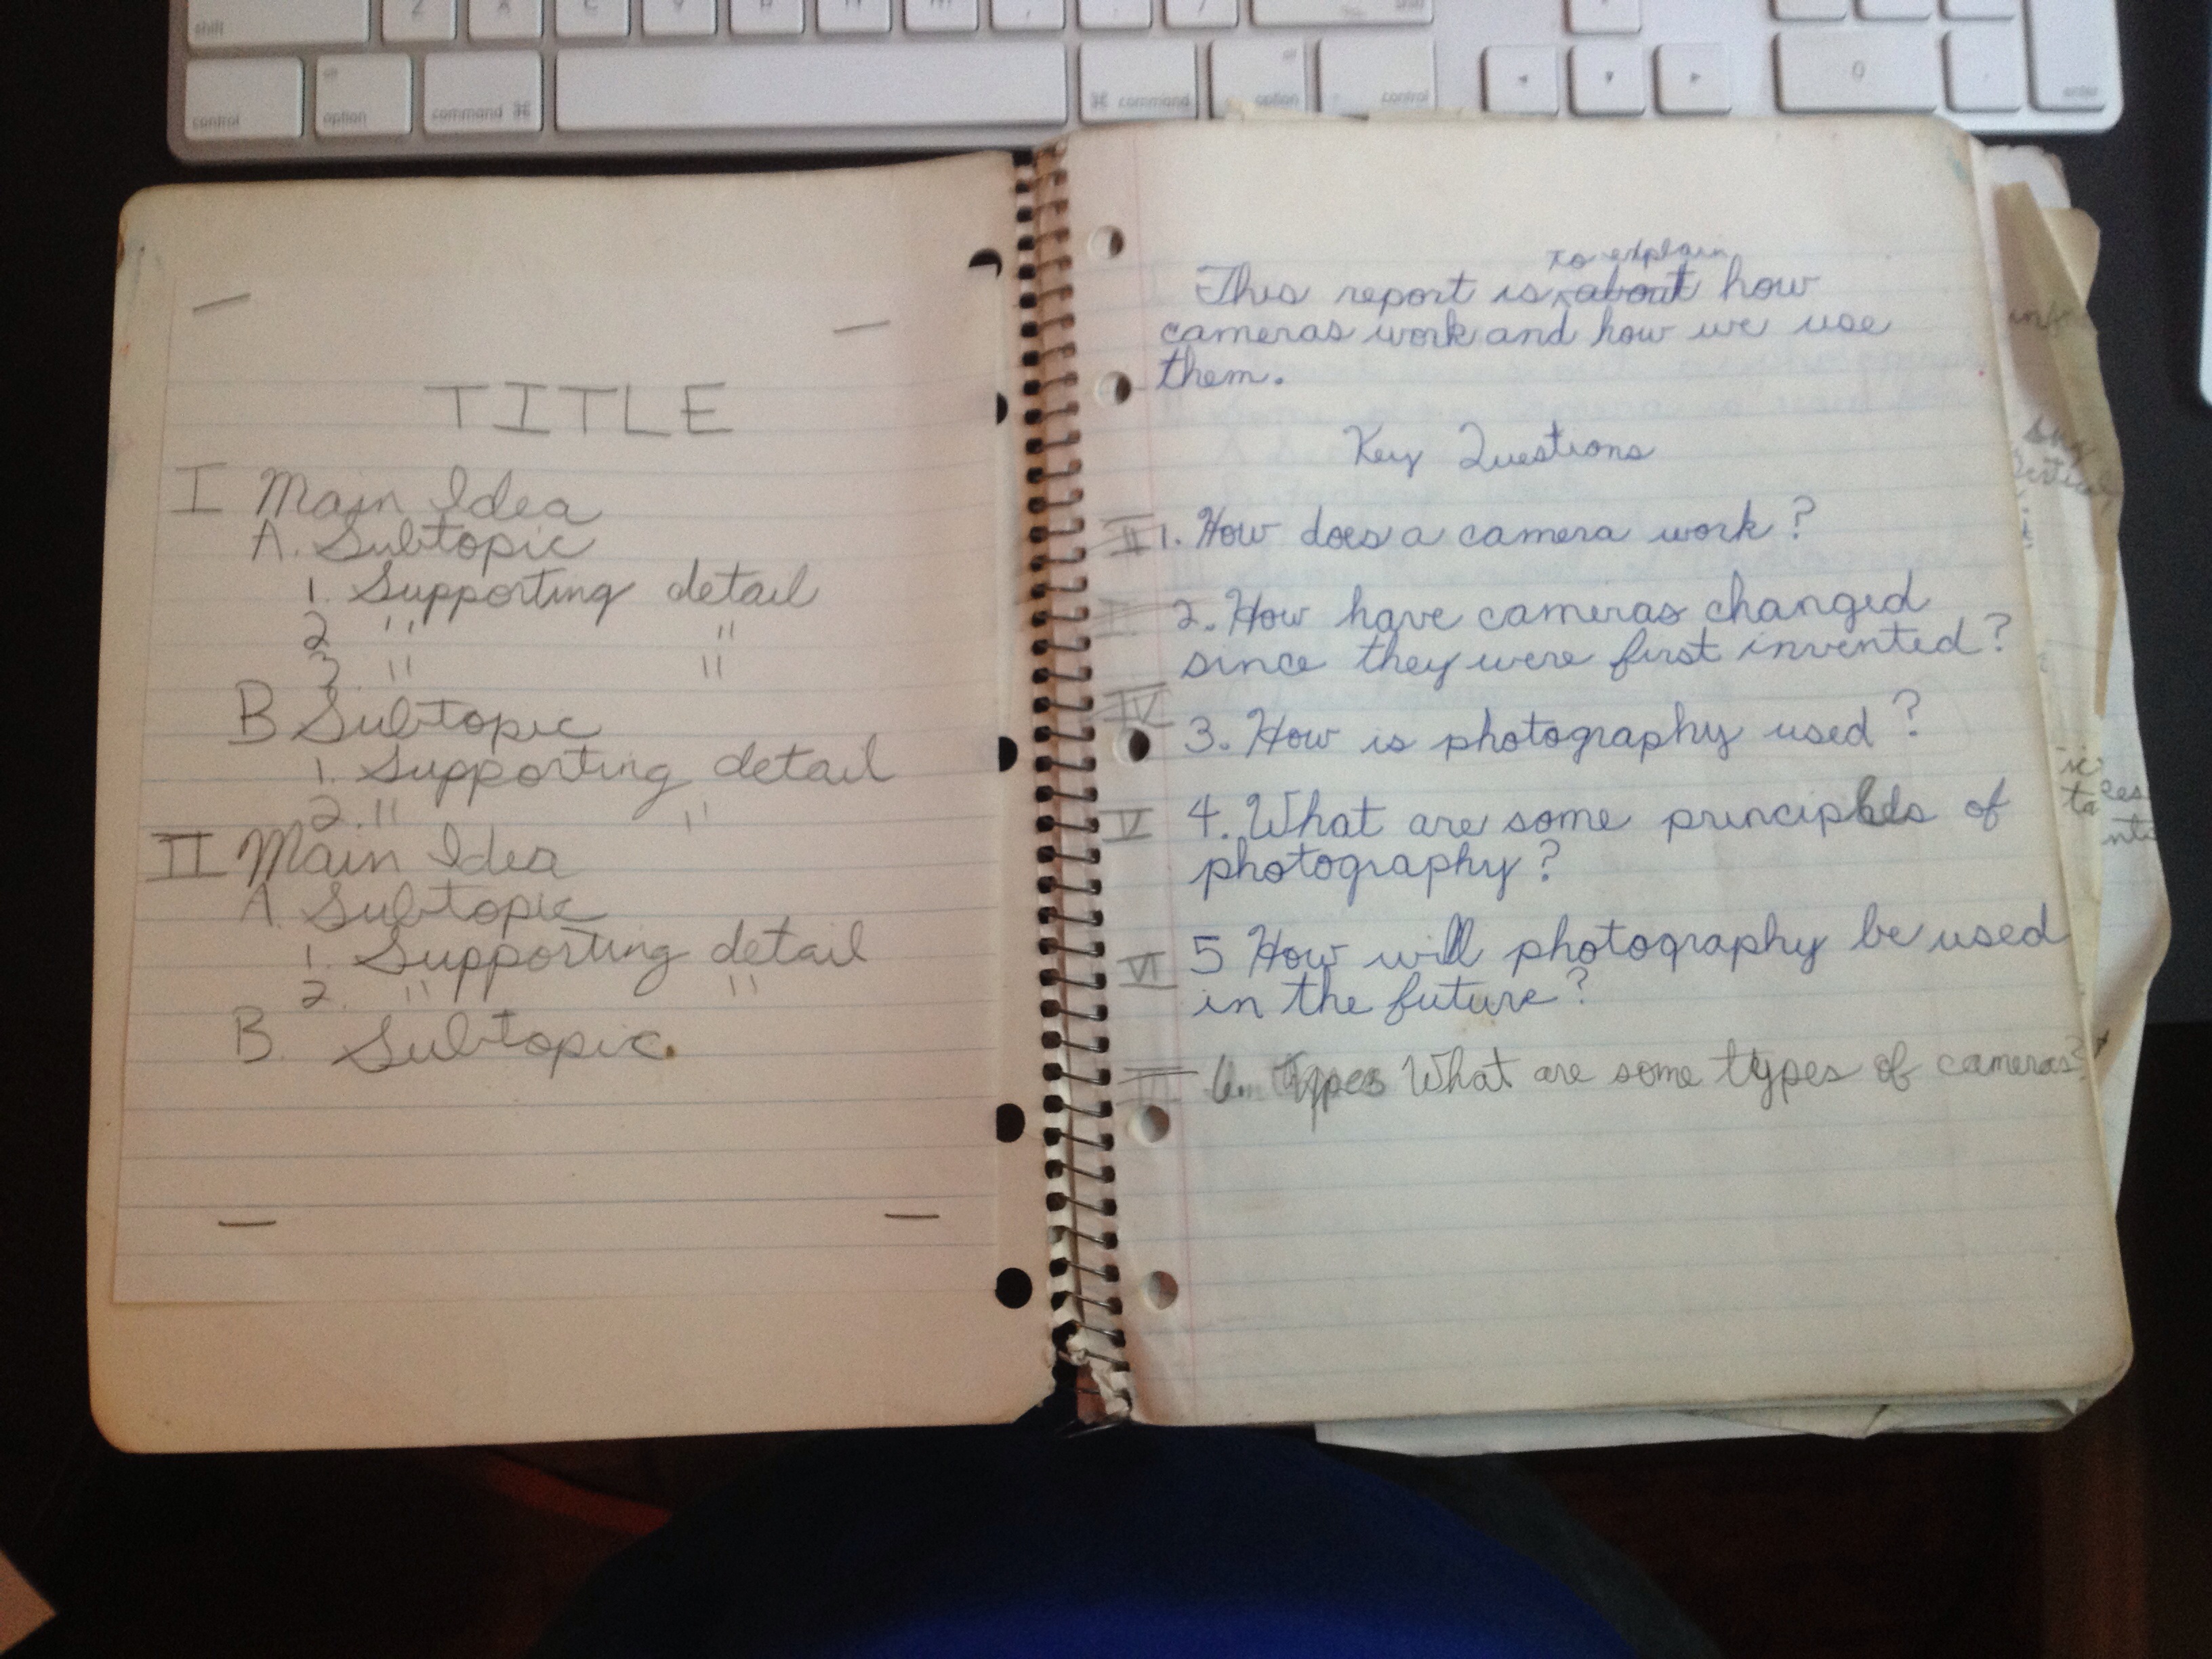 shift
control
option
command ⌘
⌘ command
option
control
0
enter
TITLE
I Main Idea
A. Subtopic
1. Supporting detail
2 " "
3. " "
B Subtopic
1. Supporting detail
2. " "
II Main Idea
A Subtopic
1. Supporting detail
2. " "
B. Subtopic.
to explain
This report is ‸ about how
cameras work and how we use
them.
Key Questions
II 1. How does a camera work?
I 2. How have cameras changed
since they were first invented?
IV
3. How is photography used?
V 4. What are some principles of
photography?
VI 5 How will photography be used
in the future?
III 6. Types What are some types of cameras?